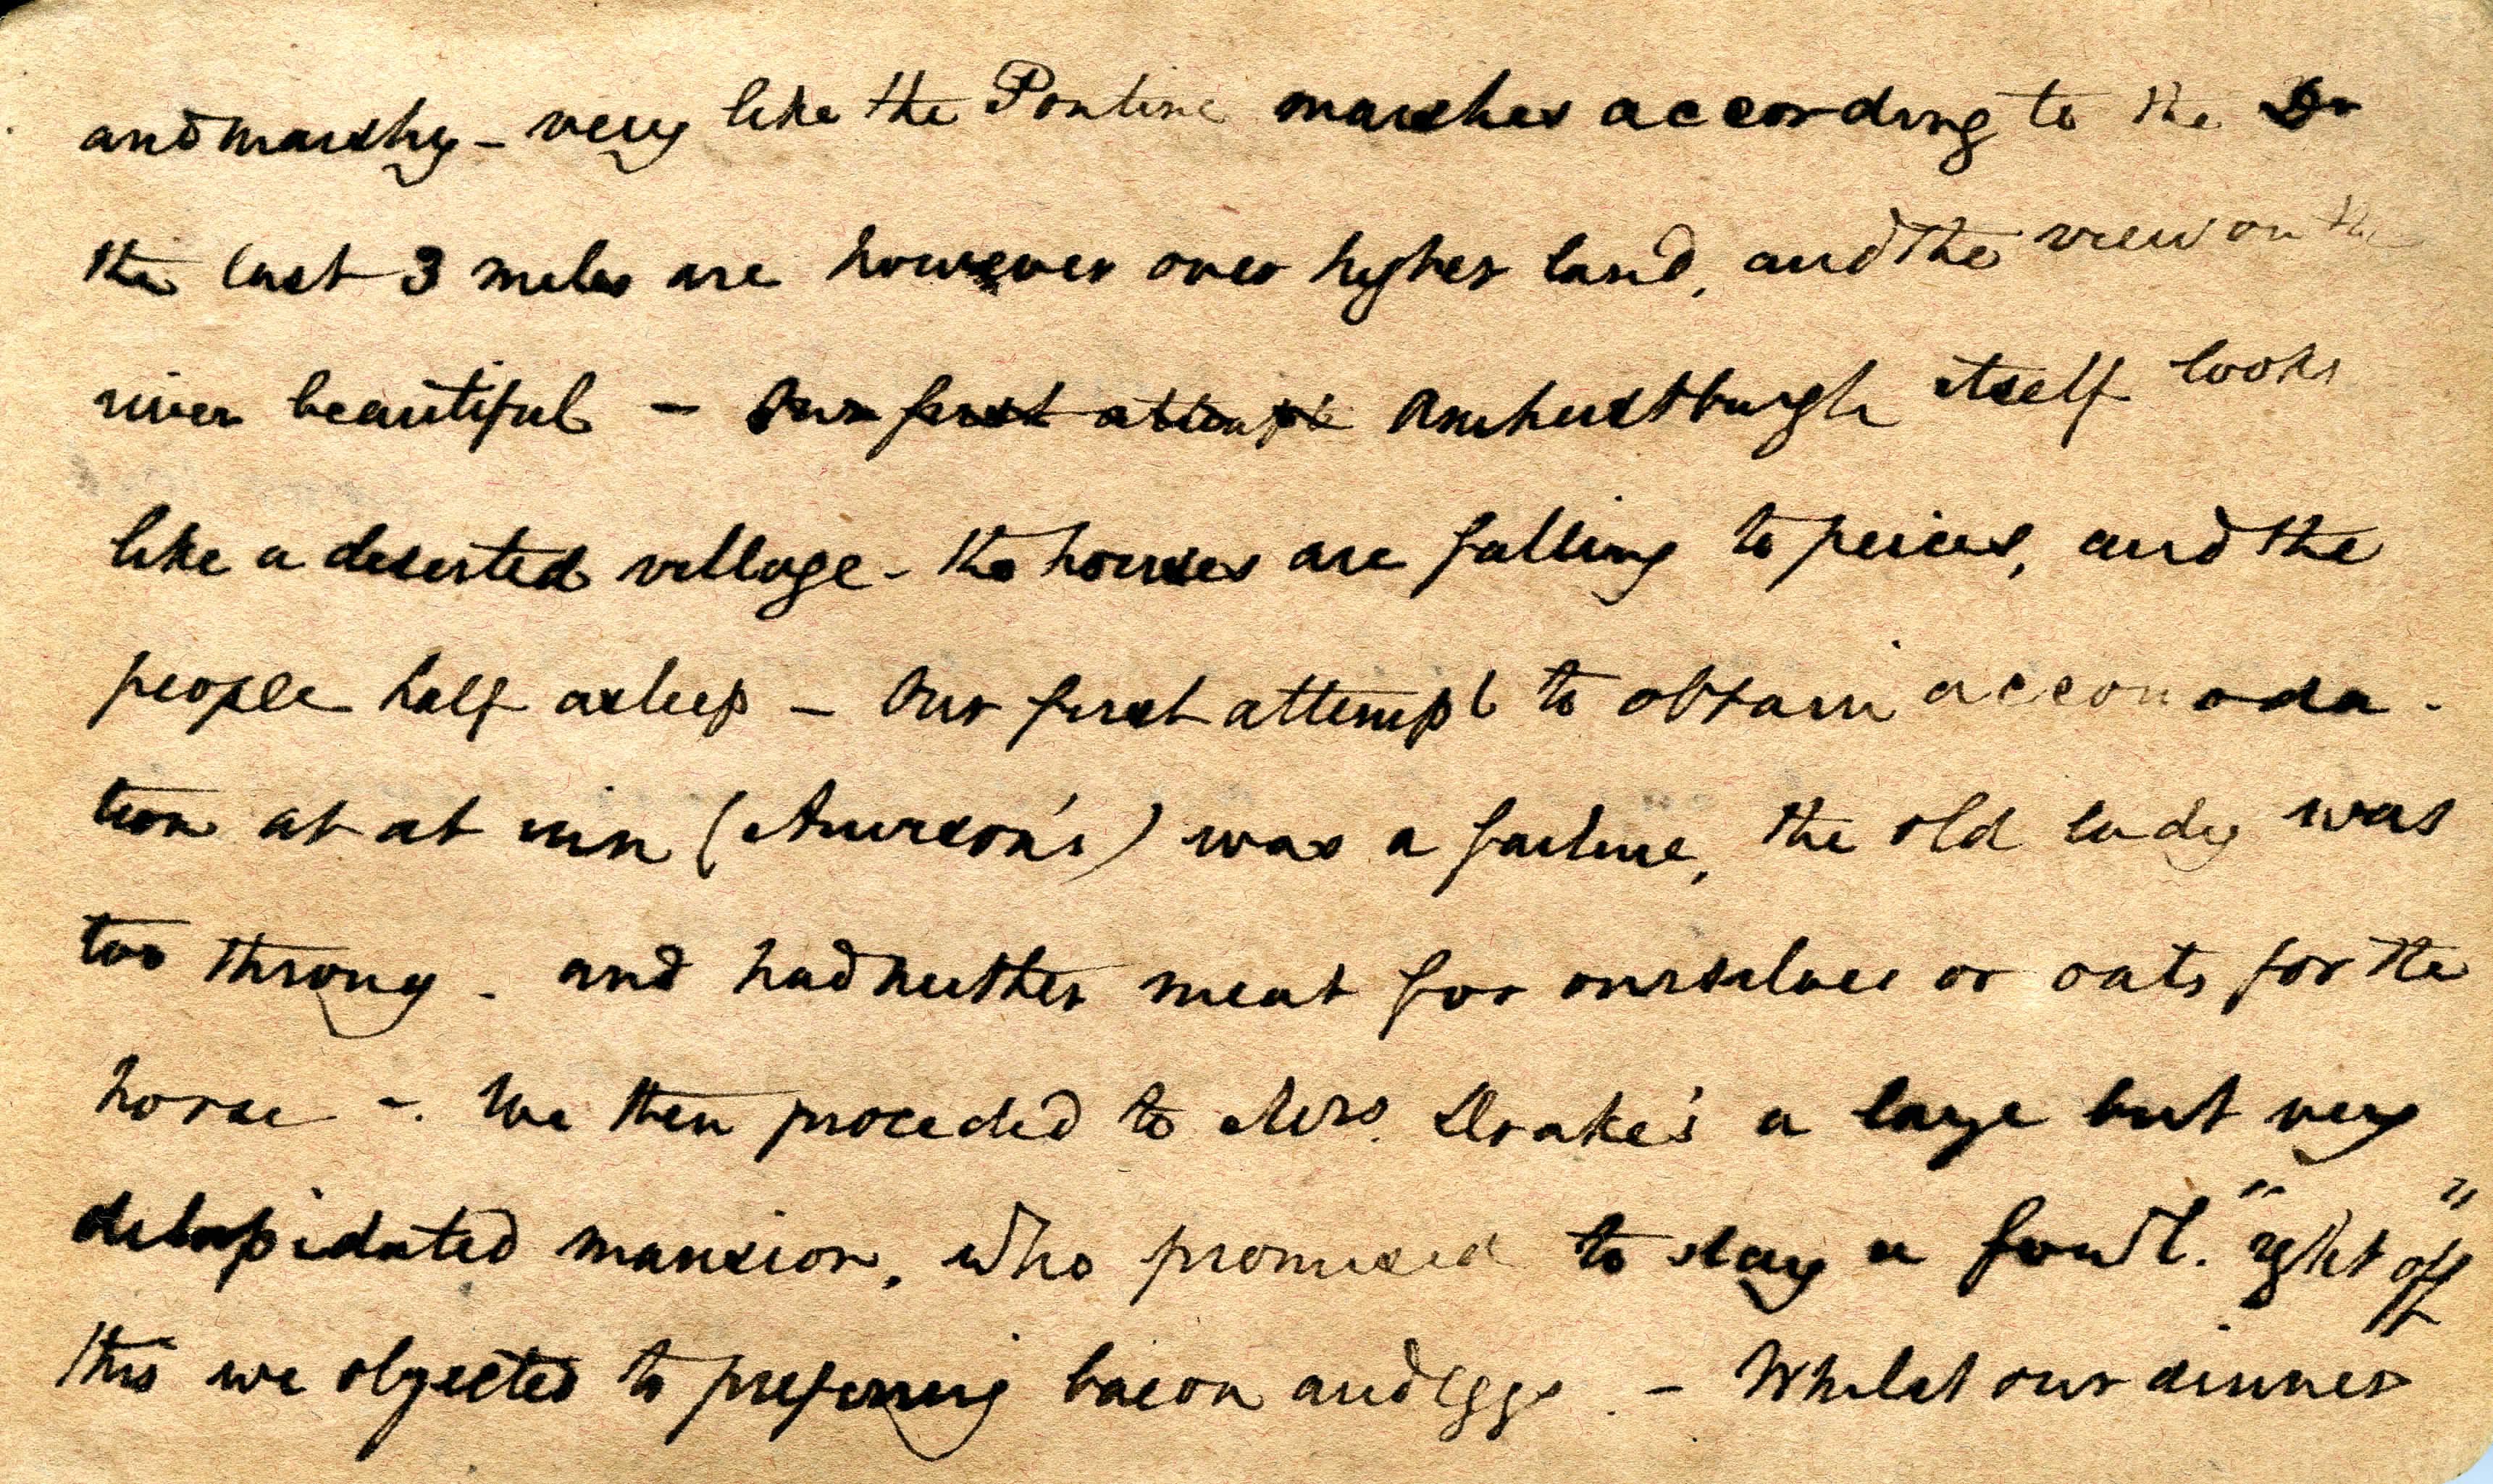 and marshy - very like the Pontine marshes according to the Dr
the last 3 miles are however over higher land, and the view on the
river beautiful - Our first attempt Amherstburgh itself looks
like a deserted village - the houses are falling to peices, and the
people half asleep - Our first attempt to obtain accomoda-
tion at at inn ( ) was a failure, the old lady was
too throng - and had neither meat for ourselves or oats for the
horse -. We then proceded to Mrs. Drake's a large but very
delapidated mansion, who promised to slay a fowl. "right off"
this we objected to preferring bacon and eggs. - Whilst our dinner